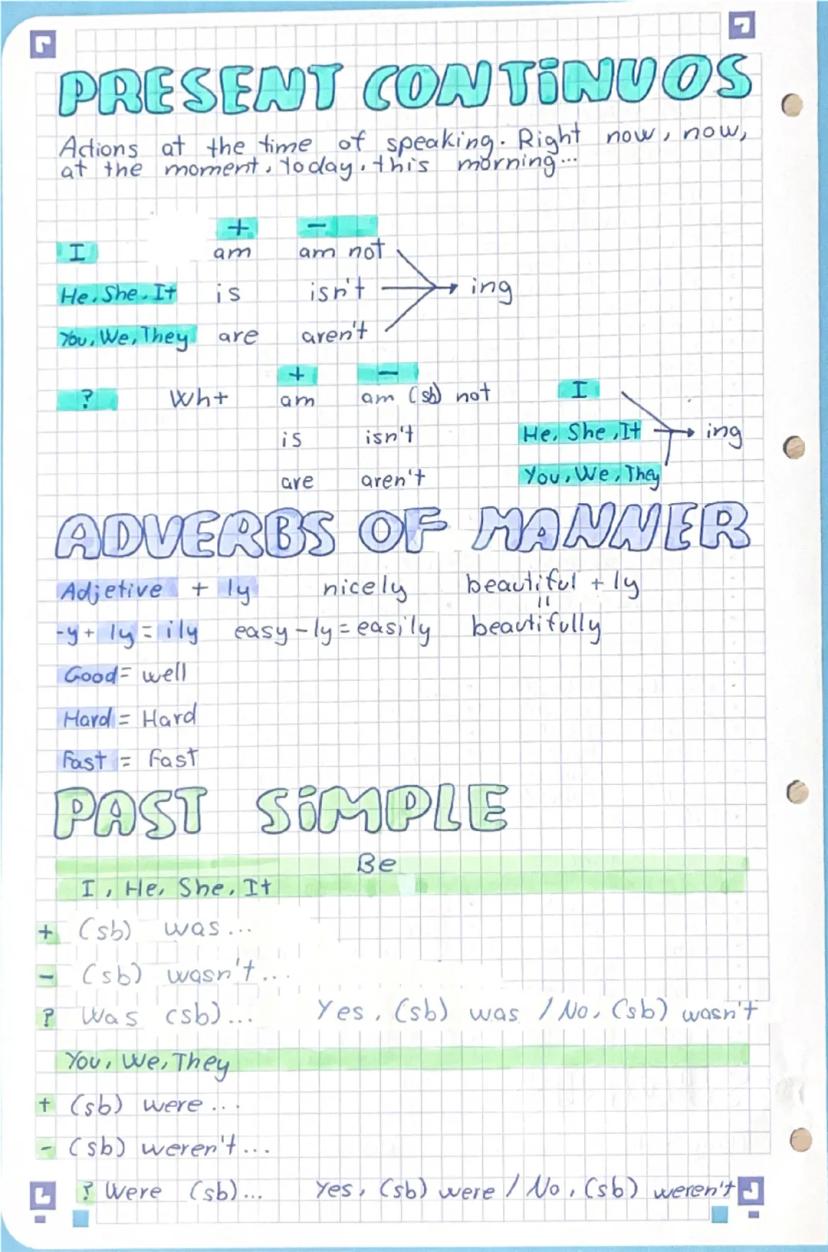 PRESENT CONTiNUOS
Actions at the time of speaking. Right now, now,
at the moment, today, this morning...
+ -
I am am not
He, She, It is isn't ing
You, We, They are aren't
+ -
? Wh+ am am (sb) not I
is isn't He, She, It ing
are aren't You, We, They
ADVERBS OF MANNER
Adjetive + ly nicely beautiful + ly
=
-y + ly = ily easy - ly = easily beautifully
Good = well
Hard = Hard
Fast = Fast
PAST SiMPLE
Be
I, He, She, It
+ (sb) was...
- (sb) wasn't...
? Was (sb)... Yes, (sb) was / No, (sb) wasn't
You, We, They
+ (sb) were...
- (sb) weren't...
? Were (sb)... Yes, (sb) were / No, (sb) weren't